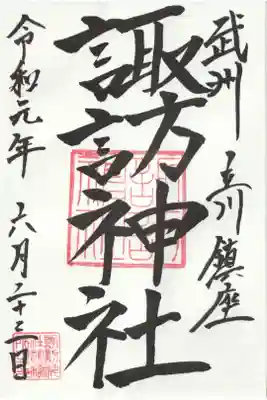 武州 立川 鎮座
諏訪神社
令和元年 六月二十三日